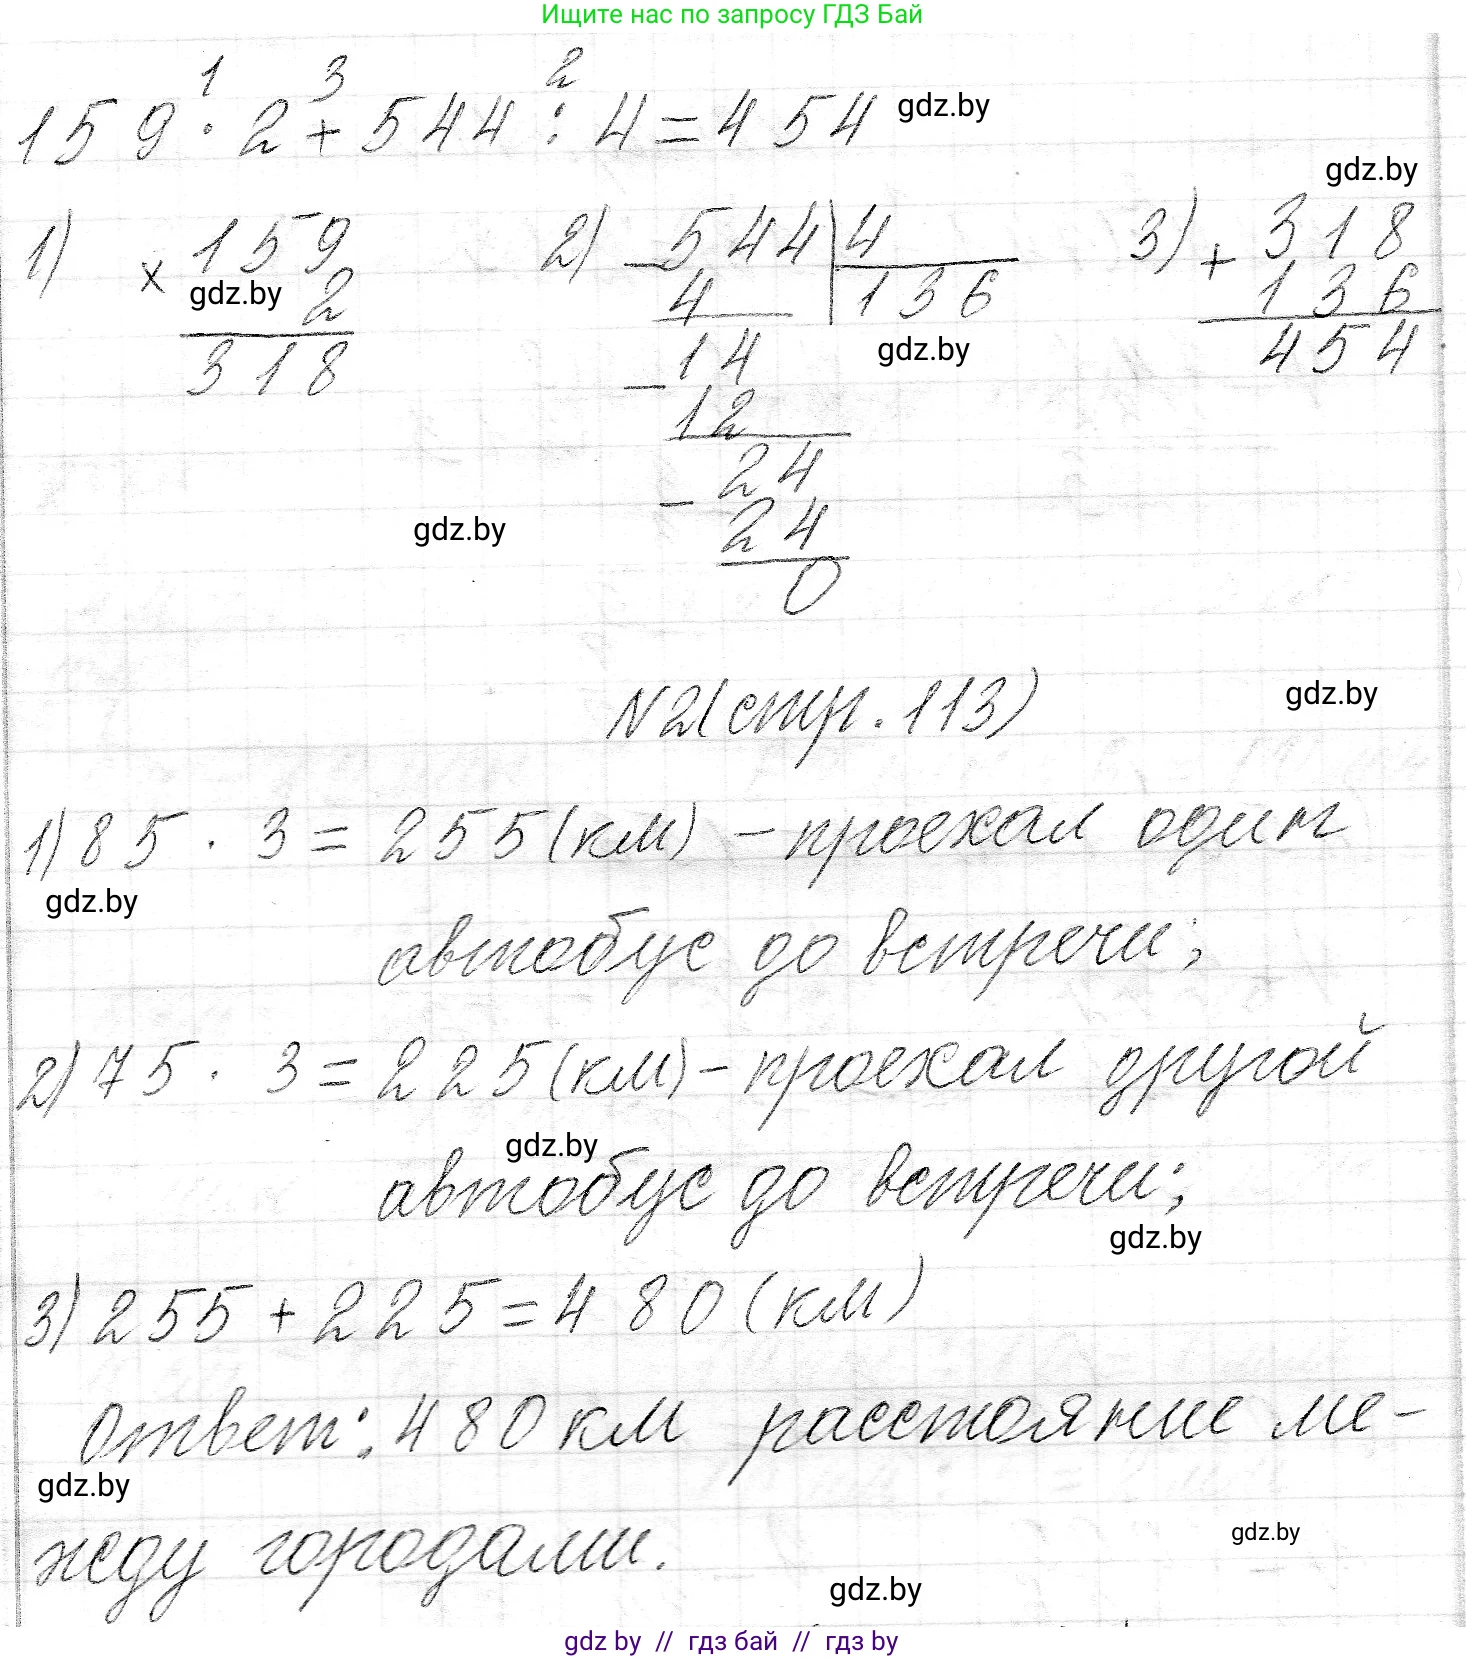 Ищите нас по запросу ГДЗ Бай
1 3 2
159 · 2 + 544 : 4 = 454 gdz.by
gdz.by
1) × 159 2) - 544 4 3) + 318
gdz.by 2 4 136 136
318 14 gdz.by 454
- 12
24
- 24
gdz.by
0
N2 (стр. 113) gdz.by
1) 85 · 3 = 255 (км) - проехал один
gdz.by
автобус до встречи;
2) 75 · 3 = 225 (км) - проехал другой
gdz.by
автобус до встречи;
gdz.by
3) 255 + 225 = 480 (км)
Ответ: 480 км расстояние ме-
gdz.by
жду городами.
gdz.by
gdz.by
gdz by // гдз бай // гдз by